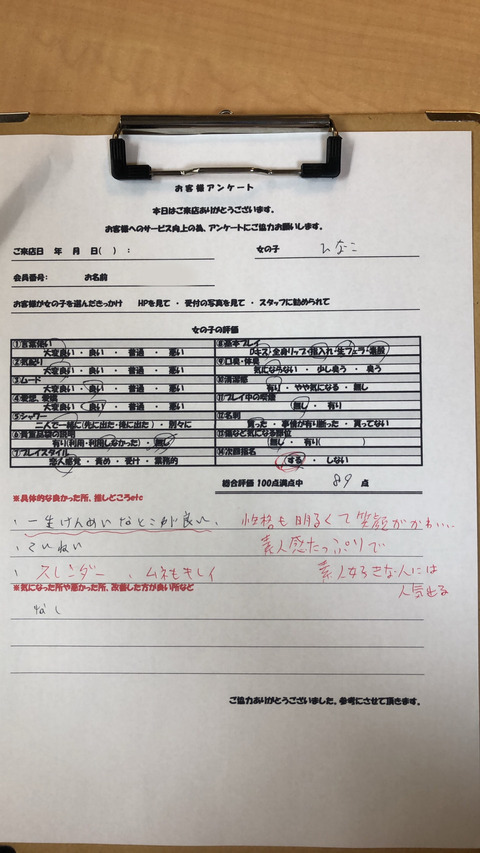 お客様アンケート
本日はご来店ありがとうございます。
お客様へのサービス向上の為、アンケートにご協力お願いします。
ご来店日 年 月 日( ) : 女の子 ひなこ
会員番号: お名前
お客様が女の子を選んだきっかけ HPを見て ・ 受付の写真を見て ・ スタッフに勧められて
女の子の評価
①言葉使い ⑧基本プレイ
大変良い ・ 良い ・ 普通 ・ 悪い Dキス・全身リップ・指入れ・生フェラ・素股
②気配り ⑨口臭・体臭
大変良い ・ 良い ・ 普通 ・ 悪い 気にならない ・ 少し臭う ・ 臭う
③ムード ⑩清潔感
大変良い ・ 良い ・ 普通 ・ 悪い 有り ・ やや気になる ・ 無し
④愛想、愛嬌 ⑪プレイ中の喫煙
大変良い ・ 良い ・ 普通 ・ 悪い 無し ・ 有り
⑤シャワー ⑫名刺
二人で一緒に(先に出た・後に出た) ・ 別々に 貰った ・ 事情が有り断った ・ 貰ってない
⑥貴重品袋の説明 ⑬傷など気になる部位
有り(利用・利用しなかった) ・ 無し 無し ・ 有り( )
⑦プレイスタイル ⑭次回指名
恋人感覚 ・ 責め ・ 受け ・ 業務的 する ・ しない
総合評価 100点満点中 89 点
※具体的な良かった所、推しどころetc
・一生けんめいなところが良い、 性格も明るくて笑顔がかわいい
・ていねい 素人感たっぷりで
・スレンダー、ムネもキレイ 素人好きな人には
人気出る
※気になった所や悪かった所、改善した方が良い所など
なし
ご協力ありがとうございました、参考にさせて頂きます。